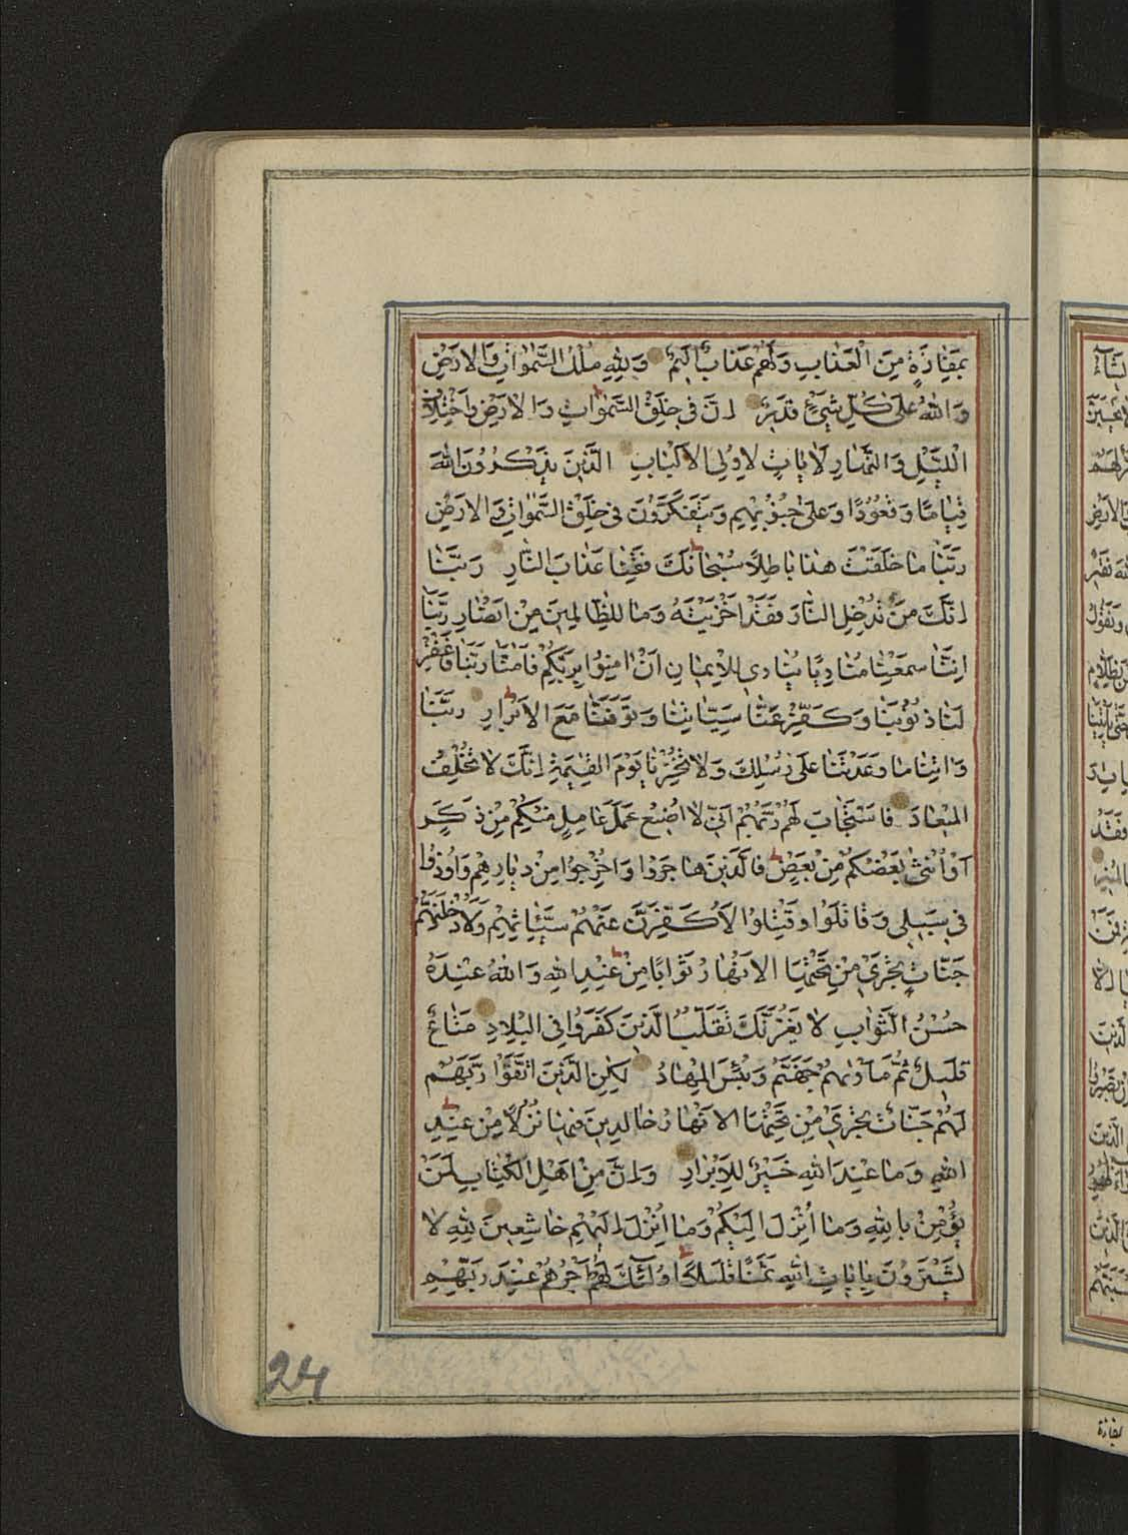 بِمَفَازَةٍ مِنَ الْعَذَابِ وَلَهُمْ عَذَابٌ اَلِيمٌ وَلِلّٰهِ مُلْكُ السَّمٰوَاتِ وَالْاَرْضِ
وَاللّٰهُ عَلٰى كُلِّ شَيْءٍ قَدِيرٌ اِنَّ فِي خَلْقِ السَّمٰوَاتِ وَالْاَرْضِ وَاخْتِلَافِ
الَّيْلِ وَالنَّهَارِ لَاٰيَاتٍ لِاُولِي الْاَلْبَابِ الَّذِينَ يَذْكُرُونَ اللّٰهَ
قِيَامًا وَقُعُودًا وَعَلٰى جُنُوبِهِمْ وَيَتَفَكَّرُونَ فِي خَلْقِ السَّمٰوَاتِ وَالْاَرْضِ
رَبَّنَا مَا خَلَقْتَ هٰذَا بَاطِلًا سُبْحَانَكَ فَقِنَا عَذَابَ النَّارِ رَبَّنَا
اِنَّكَ مَنْ تُدْخِلِ النَّارَ فَقَدْ اَخْزَيْتَهُ وَمَا لِلظَّالِمِينَ مِنْ اَنْصَارٍ رَبَّنَا
اِنَّنَا سَمِعْنَا مُنَادِيًا يُنَادِي لِلْاِيمَانِ اَنْ اٰمِنُوا بِرَبِّكُمْ فَاٰمَنَّا رَبَّنَا فَاغْفِرْ
لَنَا ذُنُوبَنَا وَكَفِّرْ عَنَّا سَيِّاٰتِنَا وَتَوَفَّنَا مَعَ الْاَبْرَارِ رَبَّنَا
وَاٰتِنَا مَا وَعَدْتَنَا عَلٰى رُسُلِكَ وَلَا تُخْزِنَا يَوْمَ الْقِيٰمَةِ اِنَّكَ لَا تُخْلِفُ
الْمِيعَادَ فَاسْتَجَابَ لَهُمْ رَبُّهُمْ اَنِّي لَا اُضِيعُ عَمَلَ عَامِلٍ مِنْكُمْ مِنْ ذَكَرٍ
اَوْ اُنْثٰى بَعْضُكُمْ مِنْ بَعْضٍ فَالَّذِينَ هَاجَرُوا وَاُخْرِجُوا مِنْ دِيَارِهِمْ وَاُوذُوا
فِي سَبِيلِي وَقَاتَلُوا وَقُتِلُوا لَاُكَفِّرَنَّ عَنْهُمْ سَيِّئَاتِهِمْ وَلَاُدْخِلَنَّهُمْ
جَنَّاتٍ تَجْرِي مِنْ تَحْتِهَا الْاَنْهَارُ ثَوَابًا مِنْ عِنْدِ اللّٰهِ وَاللّٰهُ عِنْدَهُ
حُسْنُ الثَّوَابِ لَا يَغُرَّنَّكَ تَقَلُّبُ الَّذِينَ كَفَرُوا فِي الْبِلَادِ مَتَاعٌ
قَلِيلٌ ثُمَّ مَأْوٰىهُمْ جَهَنَّمُ وَبِئْسَ الْمِهَادُ لٰكِنِ الَّذِينَ اتَّقَوْا رَبَّهُمْ
لَهُمْ جَنَّاتٌ تَجْرِي مِنْ تَحْتِهَا الْاَنْهَارُ خَالِدِينَ فِيهَا نُزُلًا مِنْ عِنْدِ
اللّٰهِ وَمَا عِنْدَ اللّٰهِ خَيْرٌ لِلْاَبْرَارِ وَاِنَّ مِنْ اَهْلِ الْكِتَابِ لَمَنْ
يُؤْمِنُ بِاللّٰهِ وَمَا اُنْزِلَ اِلَيْكُمْ وَمَا اُنْزِلَ اِلَيْهِمْ خَاشِعِينَ لِلّٰهِ لَا
يَشْتَرُونَ بِاٰيَاتِ اللّٰهِ ثَمَنًا قَلِيلًا اُولٰئِكَ لَهُمْ اَجْرُهُمْ عِنْدَ رَبِّهِمْ
24
بمفازة